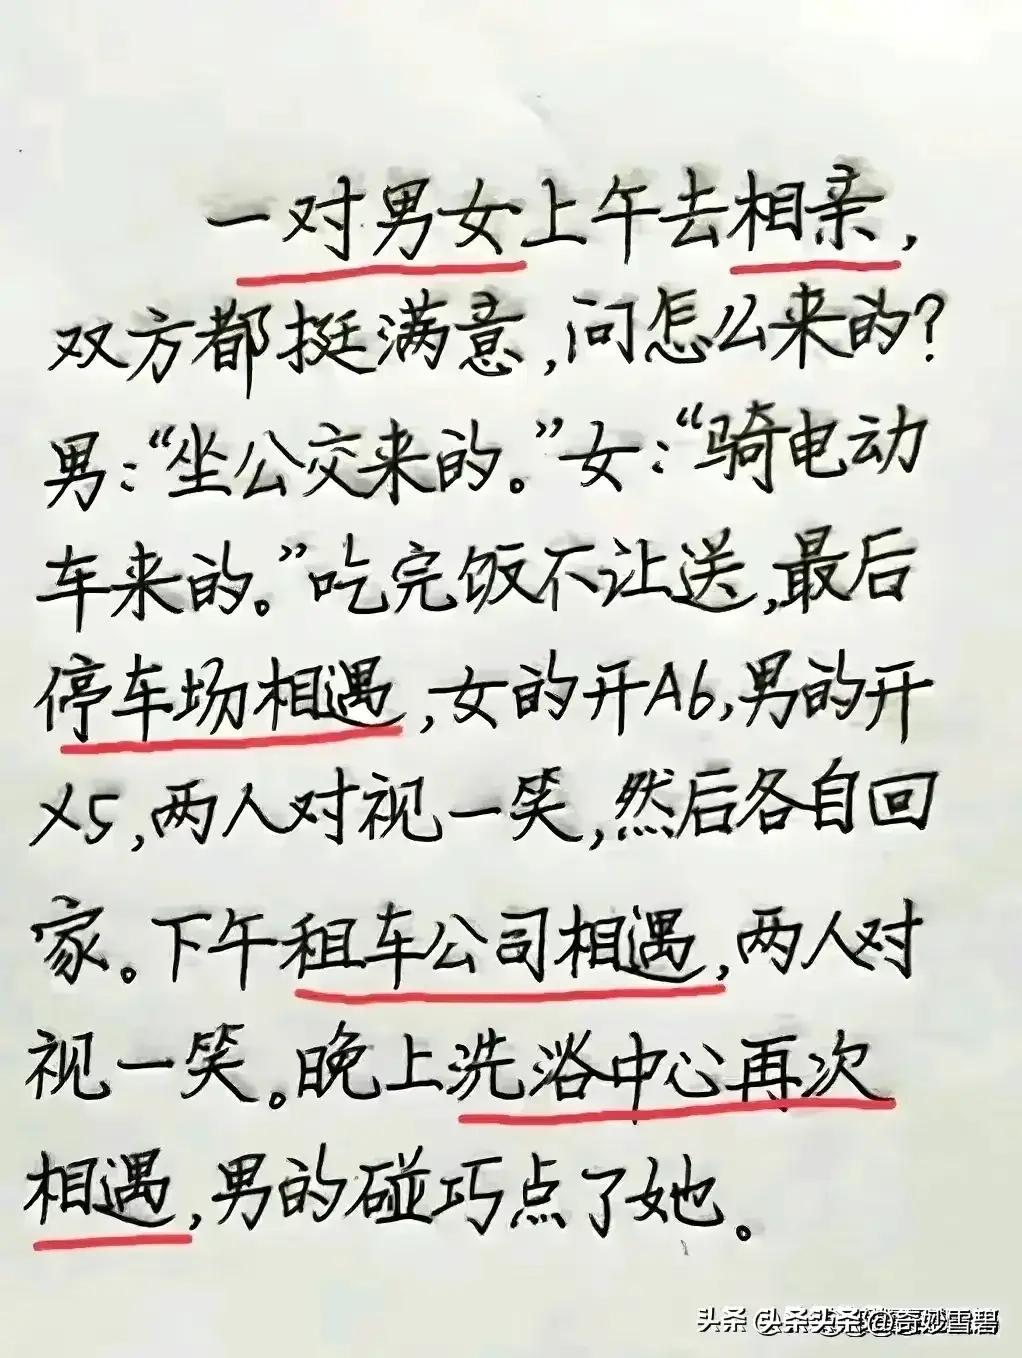 一对男女上午去相亲，
双方都挺满意，问怎么来的？
男：“坐公交来的。”女：“骑电动
车来的。”吃完饭不让送，最后
停车场相遇，女的开A6，男的开
X5，两人对视一笑，然后各自回
家。下午租车公司相遇，两人对
视一笑。晚上洗浴中心再次
相遇，男的碰巧点了她。
头条 @奇妙雪碧